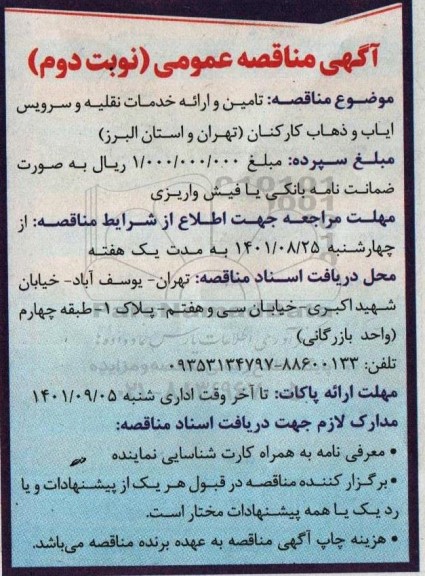 آگهی مناقصه عمومی (نوبت دوم)
موضوع مناقصه: تامین و ارائه خدمات نقلیه و سرویس
ایاب و ذهاب کارکنان (تهران و استان البرز)
مبلغ سپرده: مبلغ ۱/۰۰۰/۰۰۰/۰۰۰ ریال به صورت
ضمانت نامه بانکی یا فیش واریزی
مهلت مراجعه جهت اطلاع از شرایط مناقصه: از
چهارشنبه ۱۴۰۱/۰۸/۲۵ به مدت یک هفته
محل دریافت اسناد مناقصه: تهران- یوسف آباد- خیابان
شهید اکبری-خیابان سی و هفتم- پلاک ۱- طبقه چهارم
(واحد بازرگانی)
تلفن: ۸۸۶۰۰۱۳۳-۰۹۳۵۳۱۳۴۷۹۷
مهلت ارائه پاکات: تا آخر وقت اداری شنبه ۱۴۰۱/۰۹/۰۵
مدارک لازم جهت دریافت اسناد مناقصه:
• معرفی نامه به همراه کارت شناسایی نماینده
• برگزار کننده مناقصه در قبول هر یک از پیشنهادات و یا
رد یک یا همه پیشنهادات مختار است.
• هزینه چاپ آگهی مناقصه به عهده برنده مناقصه می‌باشد.